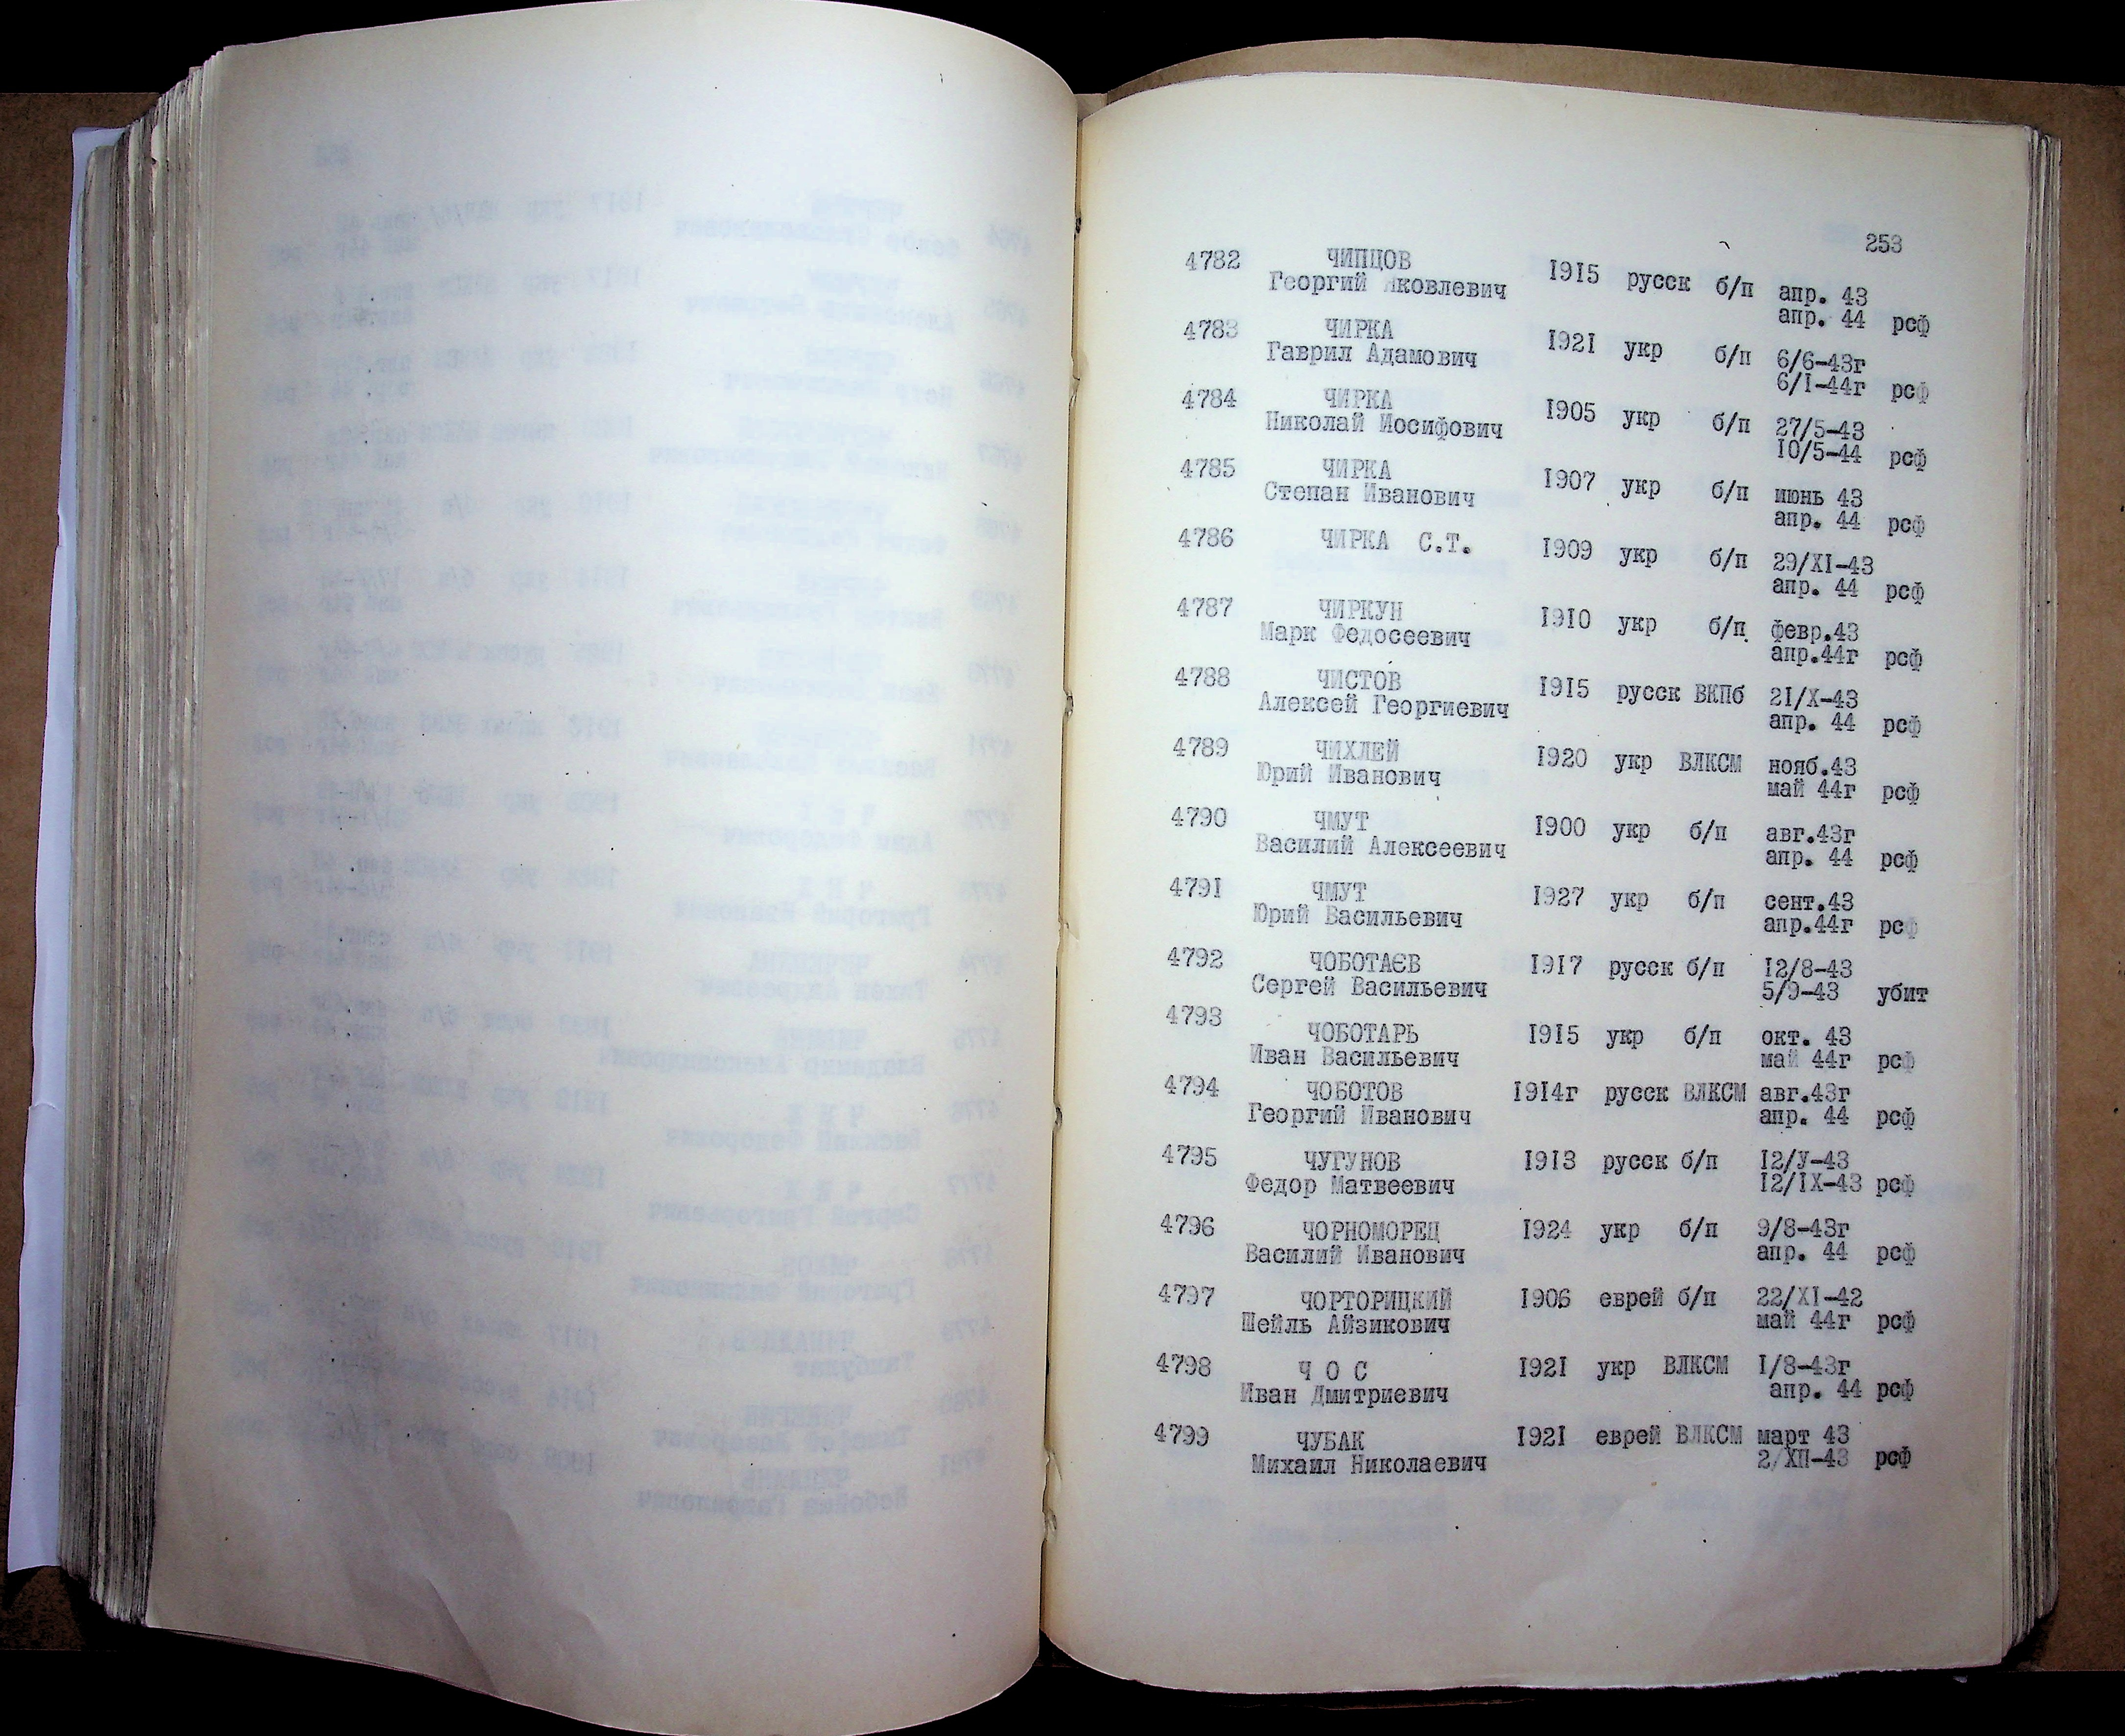 253
4782 ЧИПЦОВ 1915 русск б/п апр. 43
Георгий Яковлевич апр. 44 рсф
4783 ЧИРКА 1921 укр б/п 6/6-43г
Гаврил Адамович 6/I-44г рсф
4784 ЧИРКА 1905 укр б/п 27/5-43
Николай Иосифович 10/5-44 рсф
4785 ЧИРКА 1907 укр б/п июнь 43
Степан Иванович апр. 44 рсф
4786 ЧИРКА С.Т. 1909 укр б/п 29/XI-43
апр. 44 рсф
4787 ЧИРКУН 1910 укр б/п февр.43
Марк Федосеевич апр.44г рсф
4788 ЧИСТОВ 1915 русск ВКПб 21/X-43
Алексей Георгиевич апр. 44 рсф
4789 ЧИХЛЕЙ 1920 укр ВЛКСМ нояб.43
Юрий Иванович май 44г рсф
4790 ЧМУТ 1900 укр б/п авг.43г
Василий Алексеевич апр. 44 рсф
4791 ЧМУТ 1927 укр б/п сент.43
Юрий Васильевич апр.44г рсф
4792 ЧОБОТАЄВ 1917 русск б/п 12/8-43
Сергей Васильевич 5/9-43 убит
4793 ЧОБОТАРЬ 1915 укр б/п окт. 43
Иван Васильевич май 44г рсф
4794 ЧОБОТОВ 1914г русск ВЛКСМ авг.43г
Георгий Иванович апр. 44 рсф
4795 ЧУГУНОВ 1913 русск б/п 12/У-43
Федор Матвеевич 12/IX-43 рсф
4796 ЧОРНОМОРЕЦ 1924 укр б/п 9/8-43г
Василий Иванович апр. 44 рсф
4797 ЧОРТОРИЦКИЙ 1906 еврей б/п 22/XI-42
Шейль Айзикович май 44г рсф
4798 Ч О С 1921 укр ВЛКСМ I/8-43г
Иван Дмитриевич апр. 44 рсф
4799 ЧУБАК 1921 еврей ВЛКСМ март 43
Михаил Николаевич 2/ХП-43 рсф